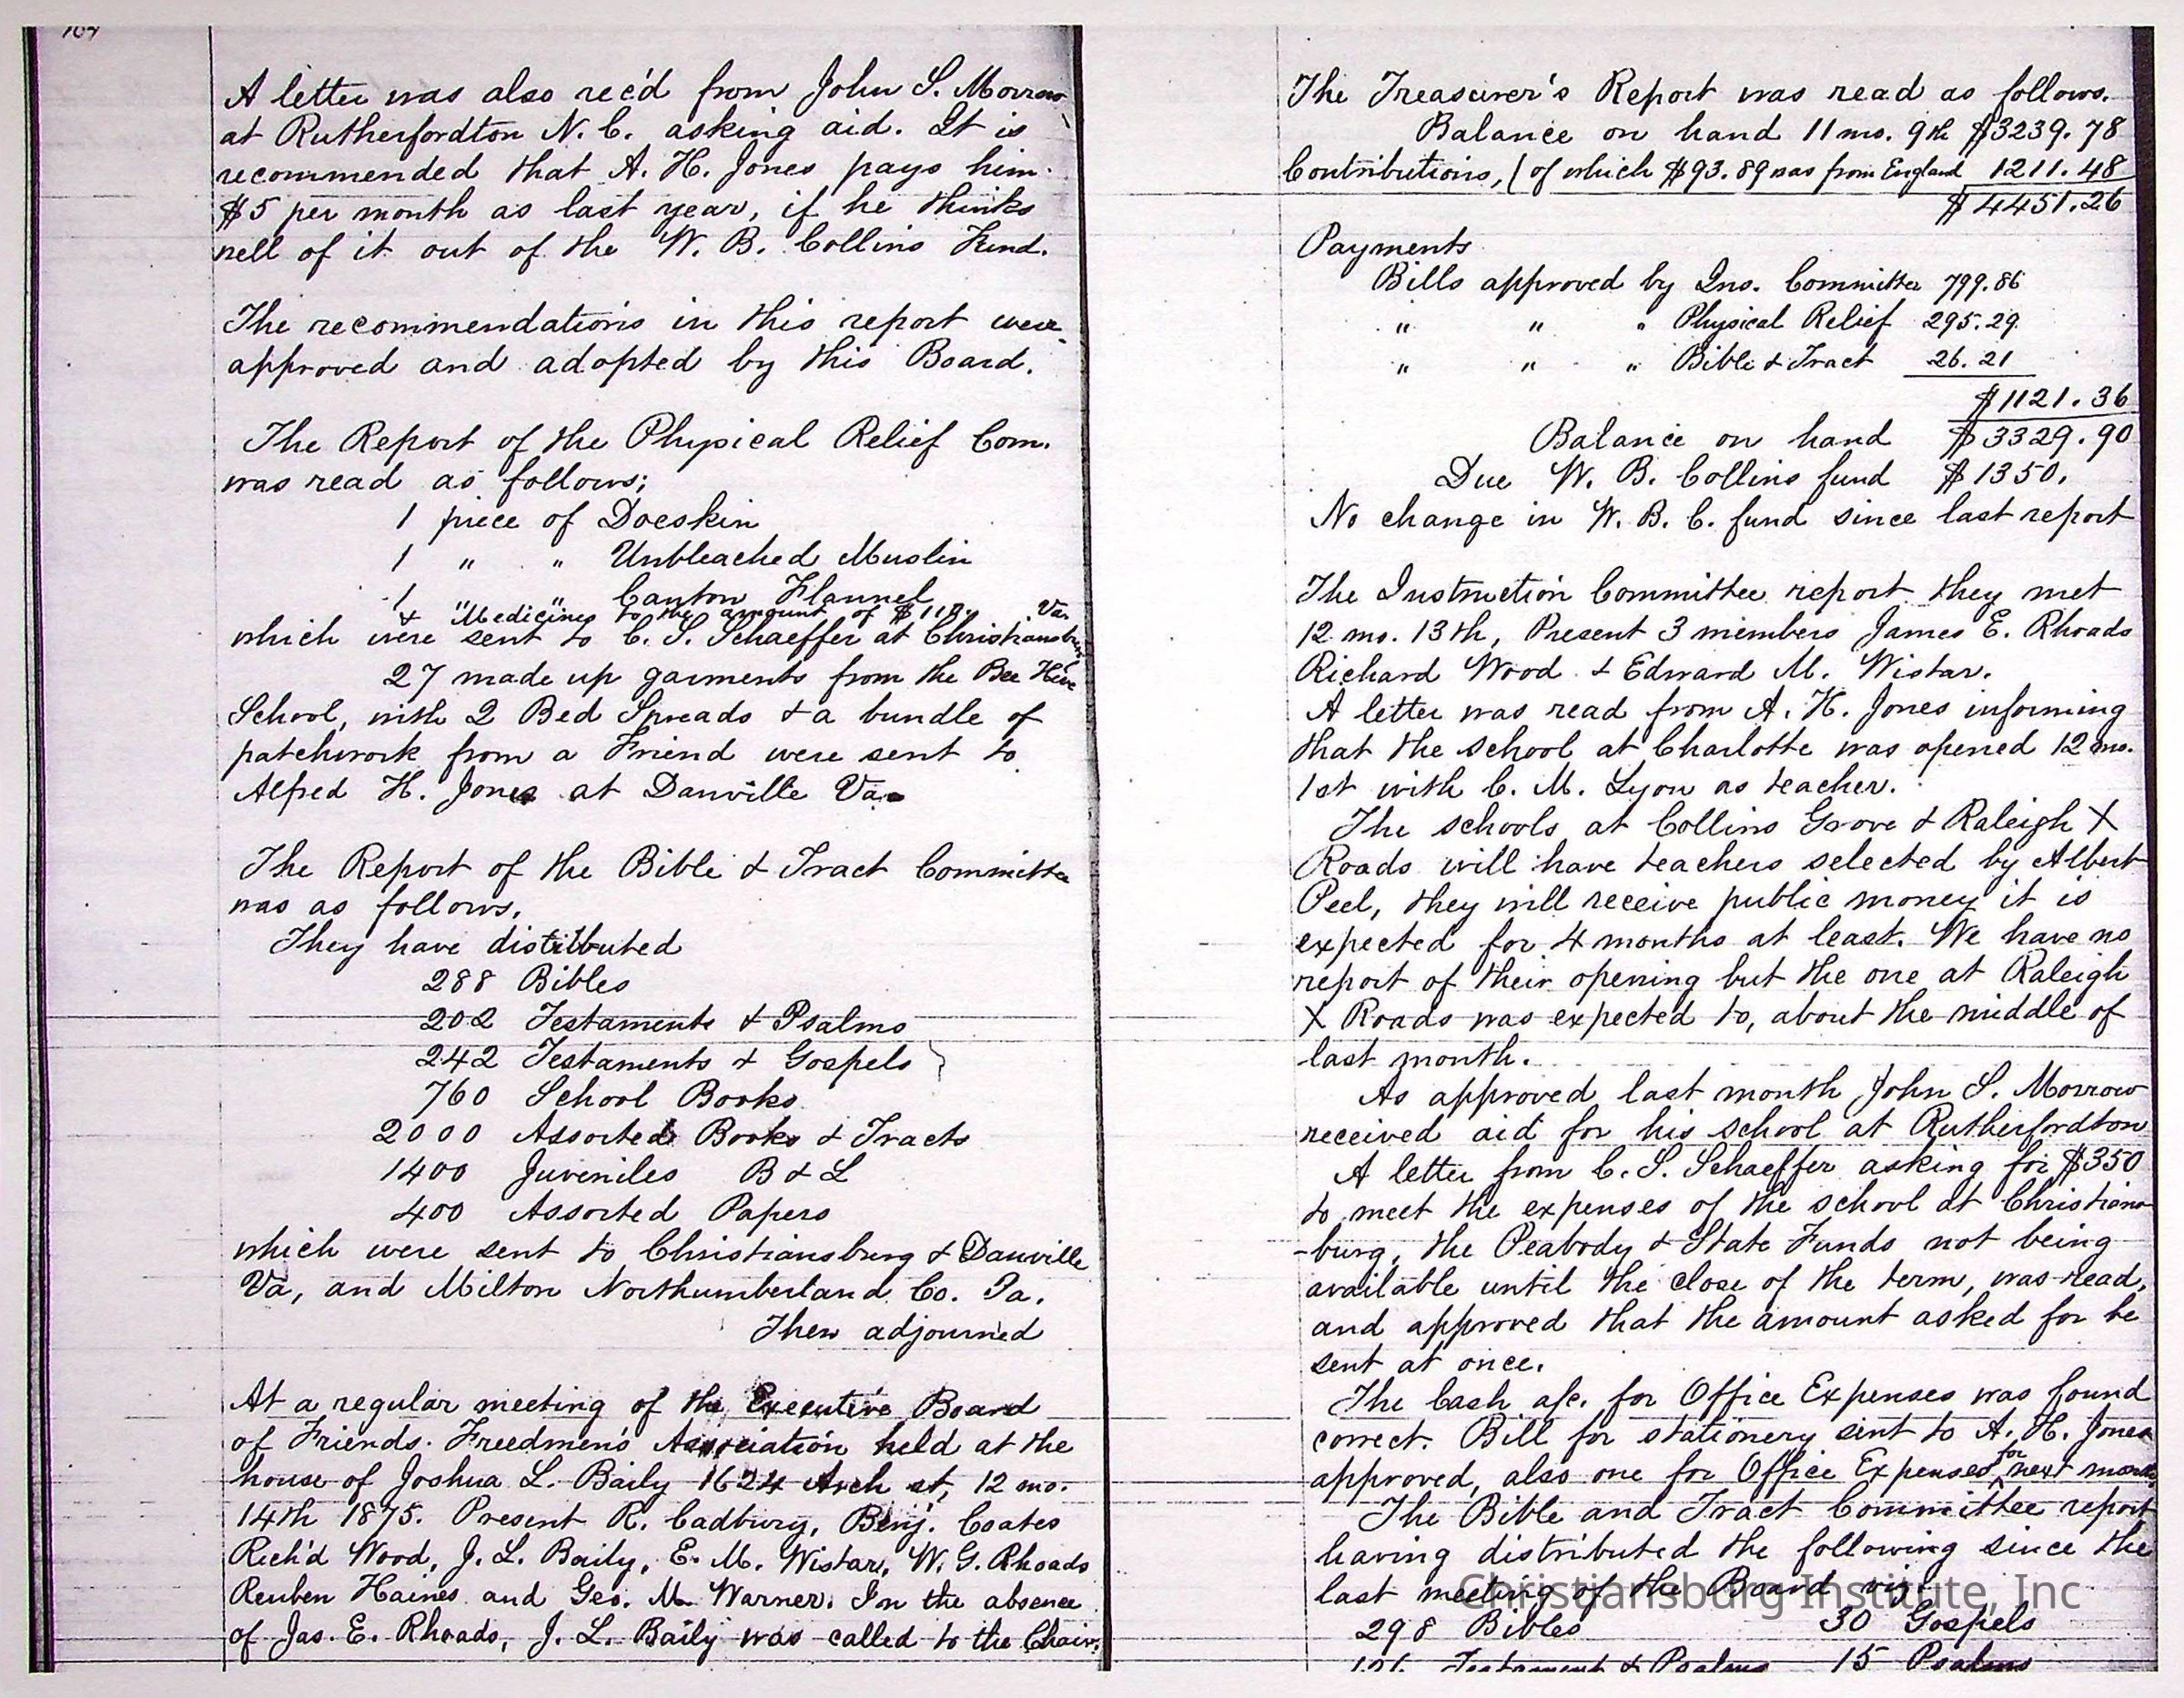 164
A letter was also rec'd from John S. Morrow
at Rutherfordton N. C. asking aid. It is
recommended that A. H. Jones pays him
$5 per month as last year, if he thinks
well of it out of the W. B. Collins Fund.
The recommendations in this report were
approved and adopted by this Board.
The Report of the Physical Relief Com.
was read as follows;
1 piece of Doeskin
1 " " Unbleached Muslin
1 " " Canton Flannel
& Medicines to the amount of
which were sent to C. S. Schaeffer at Christiansburg Va
27 made up garments from the Bee Hive
School, with 2 Bed Spreads & a bundle of
patchwork from a Friend were sent to
Alfred H. Jones at Danville Va.
The Report of the Bible & Tract Committee
was as follows.
They have distributed
288 Bibles
202 Testaments & Psalms
242 Testaments & Gospels }
760 School Books
2000 Assorted Books & Tracts
1400 Juveniles B & L
400 Assorted Papers
which were sent to Christiansburg & Danville
Va, and Milton Northumberland Co. Pa.
Then adjourned
At a regular meeting of the Executive Board
of Friends. Freedmen's Association held at the
house of Joshua L. Baily 1624 Arch st, 12 mo.
14th 1875. Present R. Cadbury, Benj. Coates
Rich'd Wood, J. L. Baily, E. M. Wistar, W. G. Rhoads
Reuben Haines and Geo. M. Warner. In the absence
of Jas. E. Rhoads, J. L. Baily was called to the Chair.
The Treasurer's Report was read as follows.
Balance on hand 11 mo. 9th $3239.78
Contributions, (of which $93.89 was from England 1211.48
$4451.26
Payments
Bills approved by Ins. Committee 799.86
" " " Physical Relief 295.29
" " " Bible & Tract 26.21
$1121.36
Balance on hand $3329.90
Due W. B. Collins fund $1350.
No change in W. B. C. fund since last report
The Instruction Committee report they met
12 mo. 13th, Present 3 members James E. Rhoads
Richard Wood & Edward M. Wistar.
A letter was read from A. H. Jones informing
that the school at Charlotte was opened 12 mo.
1st with C. M. Lyon as teacher.
The schools at Collins Grove & Raleigh X
Roads will have teachers selected by Albert
Peel, they will receive public money it is
expected for 4 months at least. We have no
report of their opening but the one at Raleigh
X Roads was expected to, about the middle of
last month.
As approved last month John S. Morrow
received aid for his school at Rutherfordton
A letter from C. S. Schaeffer asking for $350
to meet the expenses of the school at Christians
-burg, the Peabody & State Funds not being
available until the close of the term, was read,
and approved that the amount asked for be
sent at once.
The Cash a/c. for Office Expenses was found
correct. Bill for stationery sent to A. H. Jones
approved, also one for Office Expenses for next month.
The Bible and Tract Committee report
having distributed the following since the
last meeting of the Board viz:
298 Bibles 30 Gospels
Testament & Psalms 15 Psalms
Christiansburg Institute, Inc